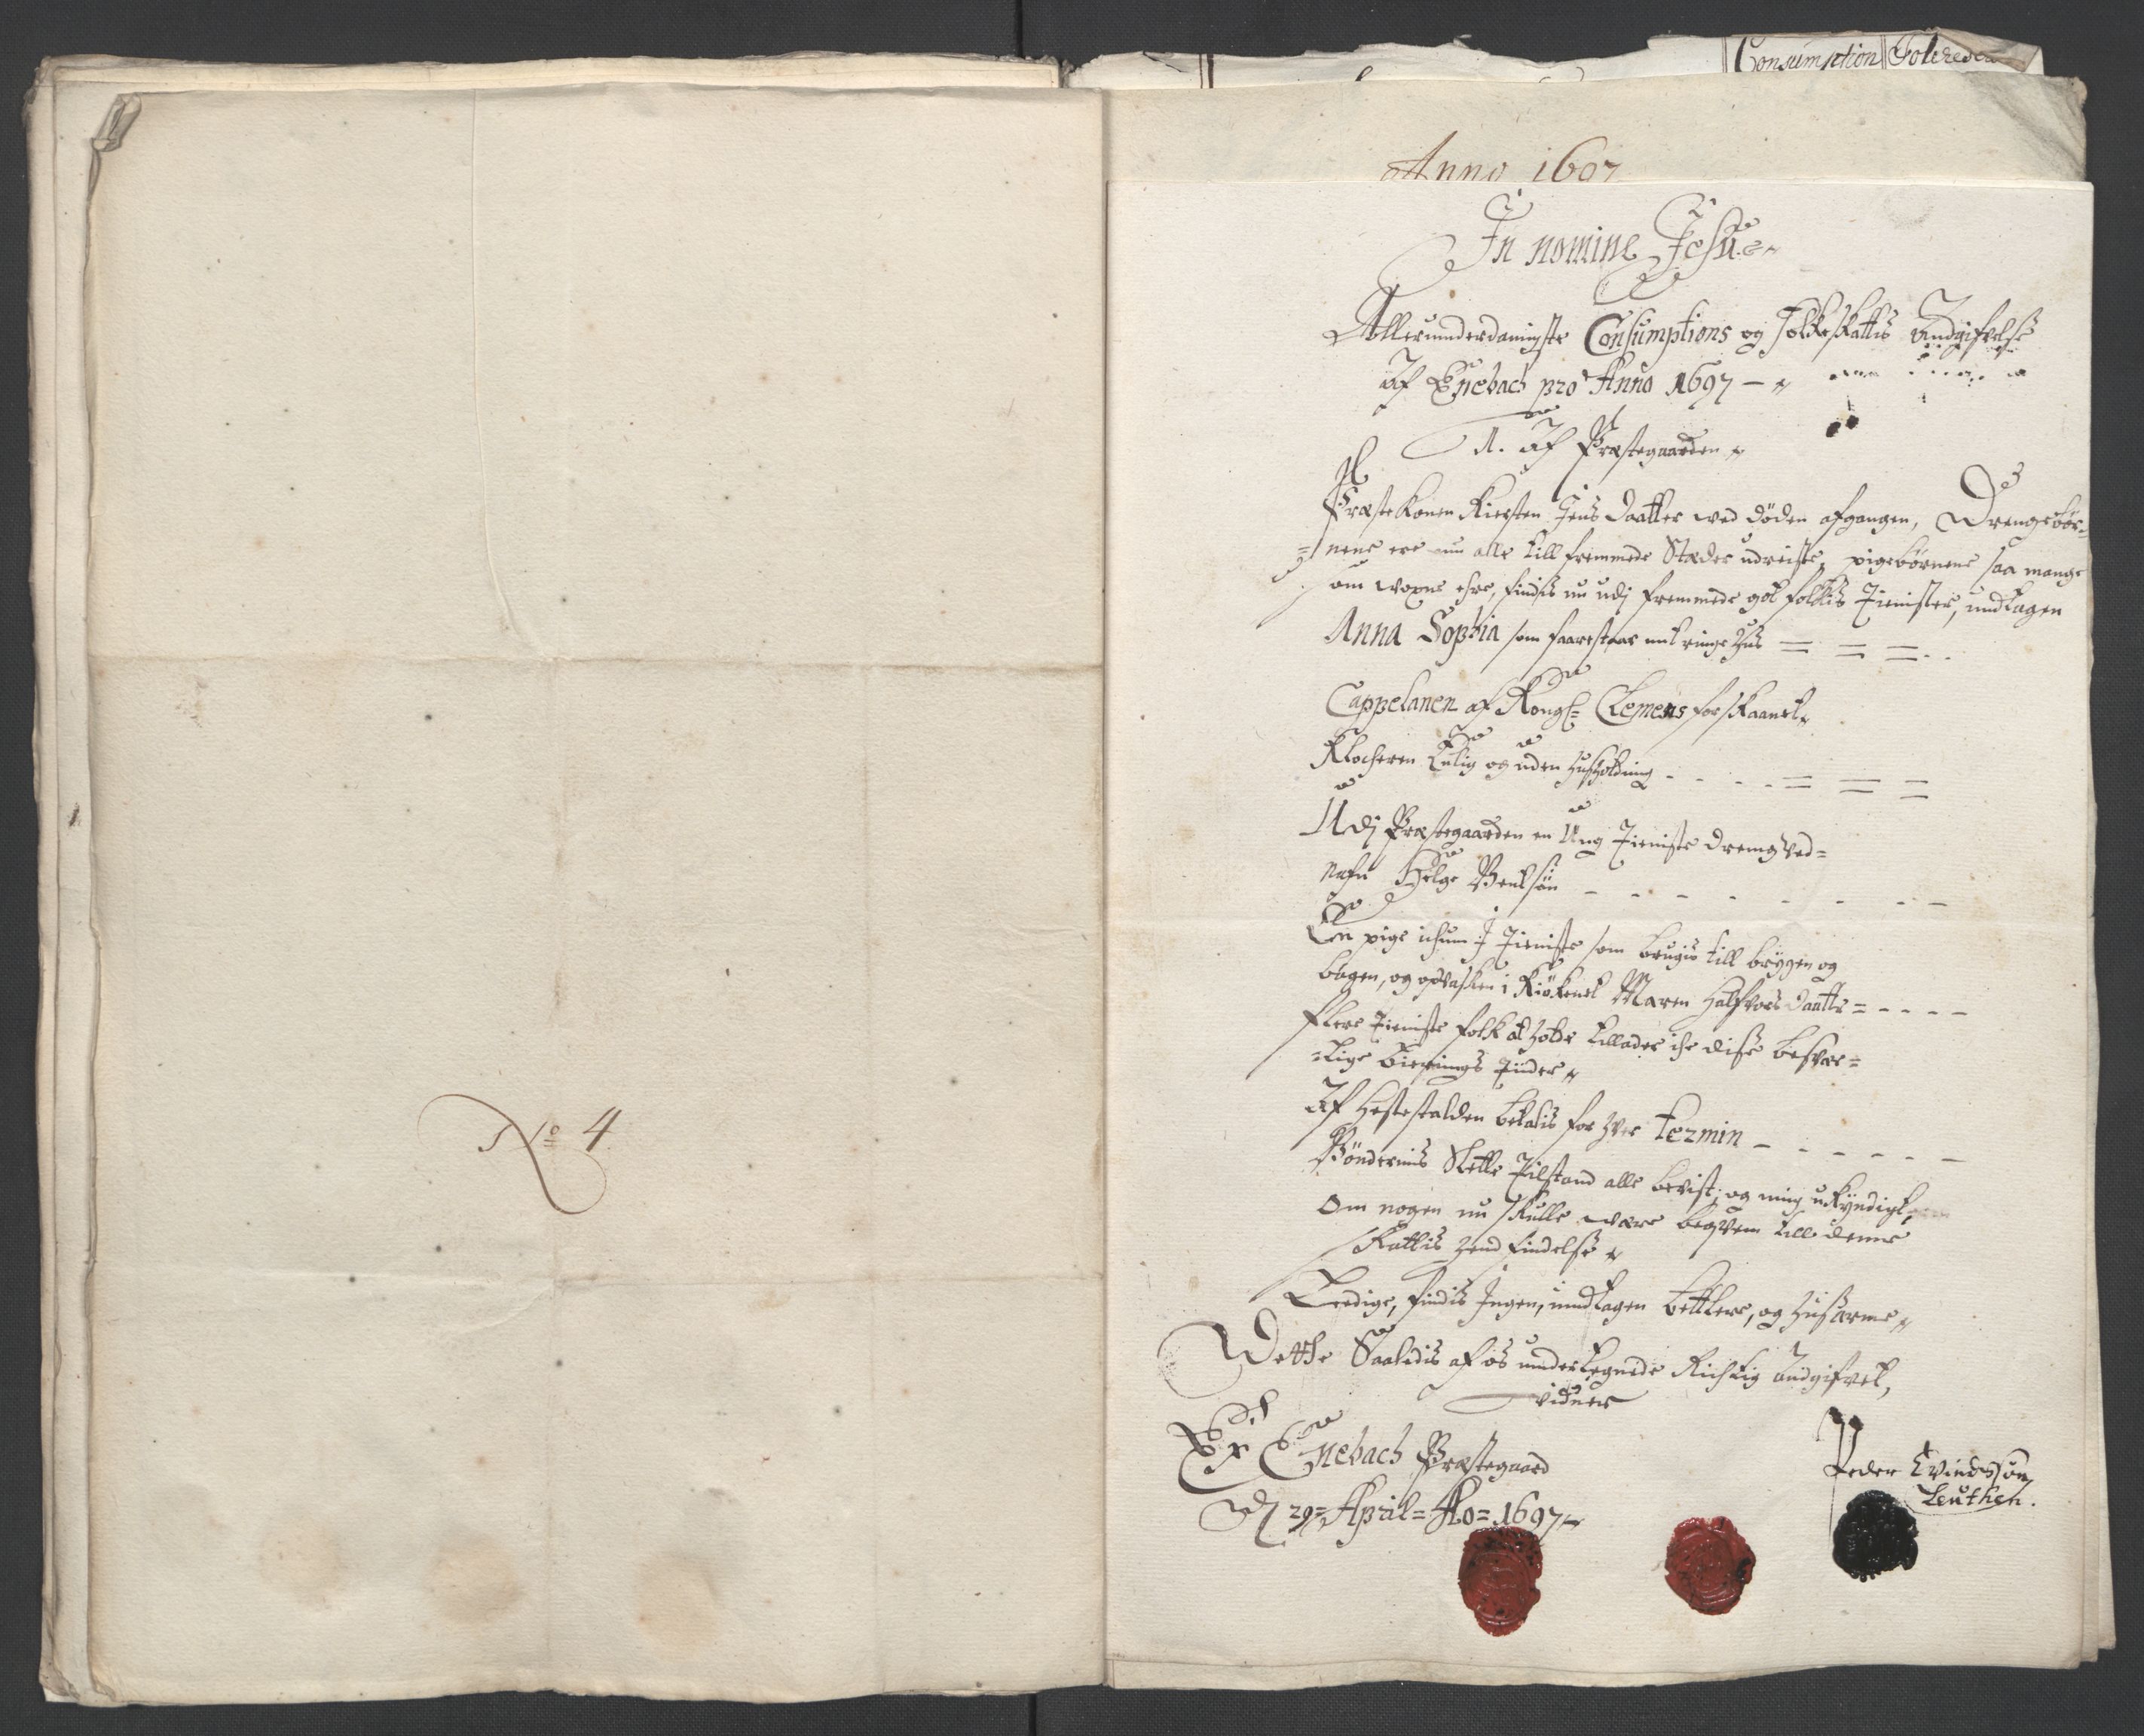 No 4
Consumption
Anno 1697
In nomine Jesu
Allerunderdanigste Consumptions og Folkeskattis Andgifvelse
Af Enebach pro Anno 1697
1. Af Præstegaarden
Præstekonen Kiersten Jens Daatter wed døden afgangen, Drengebør-
nene ere nu alle till fremmede Stæder udreiste, pigebørnene saa mange
om woxne ehre, findis nu udj fremmede got folkis Tienister, undtagen
Anna Sophia som faarestaar mit ringe Hus
Cappelanen af Kongl: Clemens forskaanet
Klocheren Enlig og uden Husholdning
Udj Præstegaarden en Ung Tieniste dreng ved-
nafn Helge Bentsøn
En pige ichun J Tieniste som brugis till brygen og
bagen, og opvasken i Kiøkenet Maren Halfvors Daatte
flere Tieniste folk at Holde tillader iche disse besvær-
lige Tiender
Af Hestestalden betalis for Hver Termin
Bøndernis Slette Tilstand alle bevist, og mig ukyndigt,
Om nogen nu skulle være beqvem till denne
Skattis
Leedige, findis Ingen, undtagen Betlere, og Husarme
Dette Saaledis af os undertegnede Richtig Andgifvet,
vidner
Ex Enebach Præstegaard
D 29 April Ao 1697
Peder Evindssøn
Leuthen.